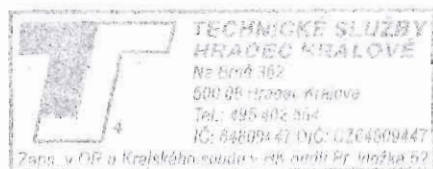 TECHNICKÉ SLUŽBY
HRADEC KRÁLOVÉ
Na Brně 362
500 08 Hradec Králové
Tel.: 495 402
4
IČ: 64809447 DIČ: CZ64809447
Zaps. v OR u Krajského soudu v HK oddíl Pr. vložka 52